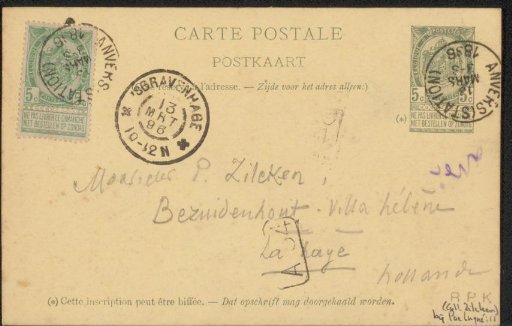 CARTE POSTALE
POSTKAART
l'adresse. — Zijde voor het adres alleen.)
ANVERS (STATION)
12
MARS
1896
5c
5c
NE PAS LIVRER LE DIMANCHE
NIET BESTELLEN OP ZONDAG
'SGRAVENHAGE
13
MRT
96
10-12N
ANVERS (STATION)
MARS
1896
5c
5c
NE PAS LIVRER LE DIMANCHE
NIET BESTELLEN OP ZONDAG
(*)
Monsieur P. Zilcken,
Bezuidenhout. Villa hélène
La Haye
Hollande
(*) Cette inscription peut être biffée. — Dat opschrift mag doorgehaald worden.
R P K
(Coll. Zilcken)